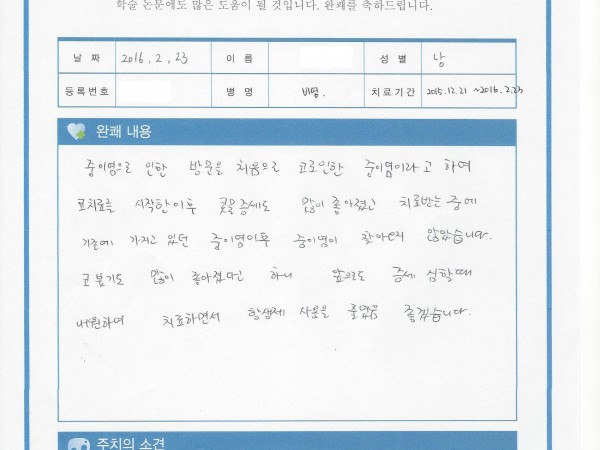 학술 논문에도 많은 도움이 될 것입니다. 완쾌를 축하드립니다.
날 짜 2016, 2, 23 이 름 성 별 남
등록번호 병 명 비염. 치료기간 2015.12.21 ~2016.2.23
완쾌 내용
중이염으로 인한 방문을 처음으로 코로인한 중이염이라고 하여
코치료를 시작한이후 콧물증세도 많이 좋아졌고 치료받는 중에
기존에 가지고 있던 중이염이후 중이염이 찾아오지 않았습니다.
코 붓기도 많이 좋아졌다고 하니 앞으로도 증세 심할때
내원하여 치료하면서 항생제 사용을 줄였음 좋겠습니다.
주치의 소견